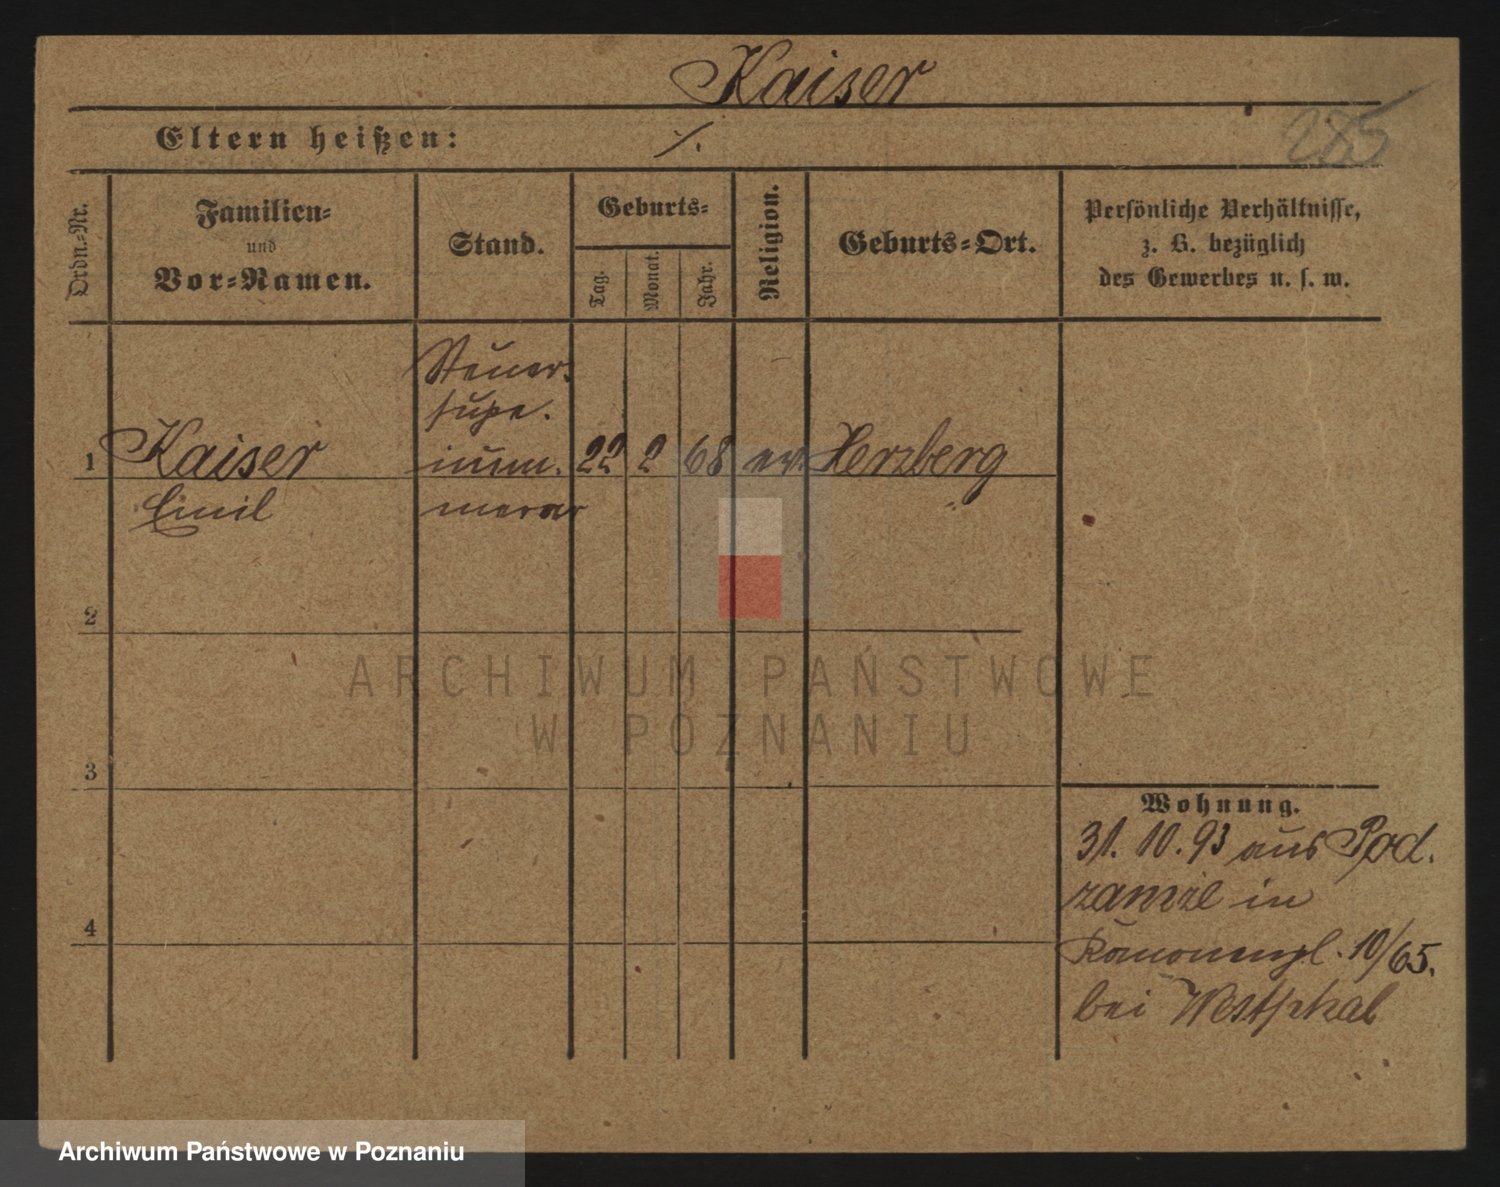 Kaiser
Eltern heißen: ./.
285
Ordn.-Nr.
Familien-
und
Vor-Namen.
Stand.
Geburts-
Tag.
Monat.
Jahr.
Religion.
Geburts-Ort.
Persönliche Verhältnisse,
z. B. bezüglich
des Gewerbes u. s. w.
Steuer-
supe.
1 Kaiser 22 2 68 ev. Herzberg
Emil
merar
2
ARCHIWUM PAŃSTWOWE
W POZNANIU
3
4
Wohnung.
31. 10. 93 aus Pod.
zamze in
Kanonenpl. 10/65.
bei Westphal
Archiwum Państwowe w Poznaniu